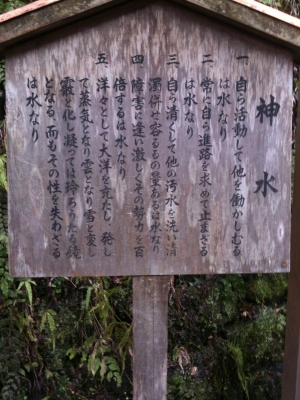 神水
一 自ら活動して他を働かしむる
は水なり
二 常に自ら進路を求めて止まざる
は水なり
三 自ら清くして他の汚水を洗い清
濁併せ容るるの量あるは水なり
四 障害に逢い激しくその勢力を百
倍するは水なり
五 洋々として大洋を充たし 発し
て蒸気となり雲となり雪と変じ
霰と化し凝っては玲ろうたる鏡
となる、而もその性を失わざる
は水なり